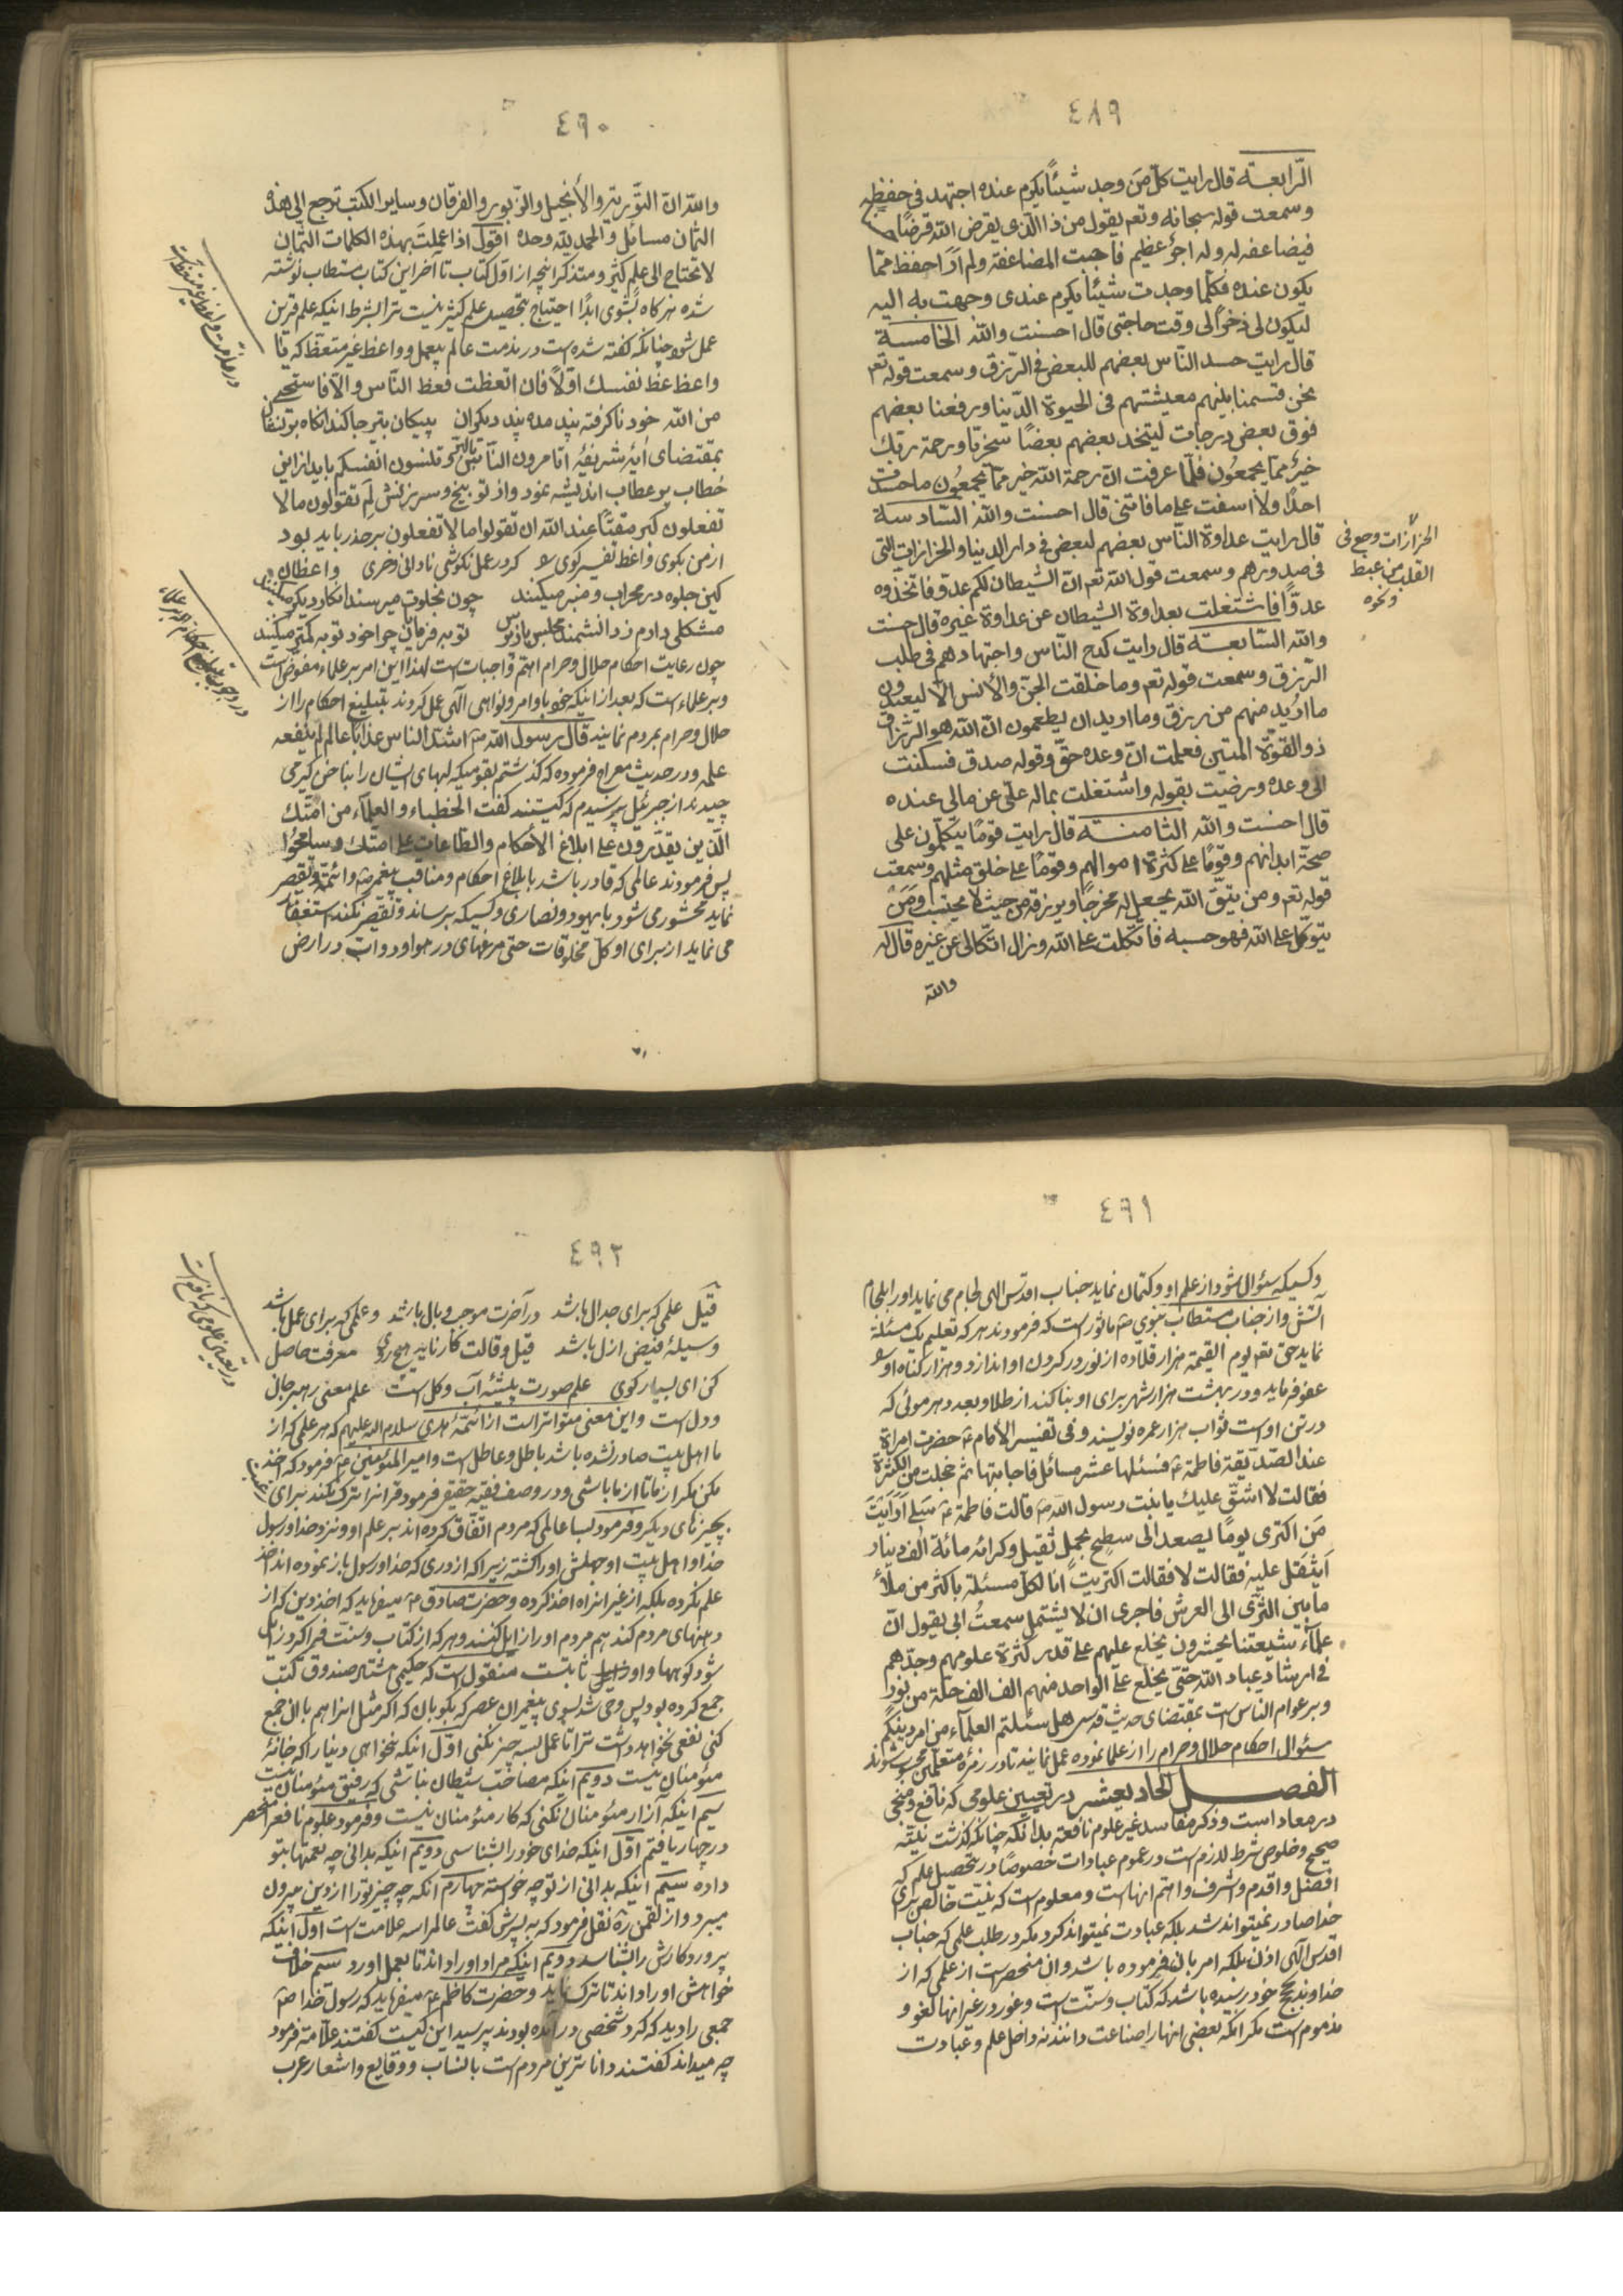 ٤٨٩
الرّابعة قال رايت كلّ من وجد شيئًا يكرم عنده اجتهد فى حفظه
وسمعت قوله سبحانه وتعم يقول من ذا الّذى يقرض الله قرضًا حسنًا
فيضاعفه له وله اجرٌ عظيم فاحببت المضاعفة ولم ار احفظ ممّا
يكون عنده فكلّما وجدت شيئًا يكرم عندى وجهت به اليه
ليكون لى ذخرًا الى وقت حاجتى قال احسنت والله الخامسة
قال رايت حسد النّاس بعضهم للبعض فى الرّزق وسمعت قوله تعم
نحن قسمنا بينهم معيشتهم فى الحيوة الدّنيا ورفعنا بعضهم
فوق بعض درجات ليتّخذ بعضهم بعضًا سخريّا ورحمة ربّك
خيرٌ ممّا يجمعُون فلمّا عرفت انّ رحمة الله خير ممّا يجمعُون ما حسدت
احدًا ولا اسفت على ما فاتنى قال احسنت والله السّادسة
قال رايت عداوة النّاس بعضهم لبعض فى دار الدنيا والحزازات الّتى
فى صدورهم وسمعت قول الله تعم انّ الشيطان لكم عدوّ فاتّخذوه
عدوًّا فاشتغلت بعداوة الشيطان عن عداوة غيره قال احسنت
والله السّابعسة قال رايت كدح النّاس واجتهادهم فى طلب
الرّزق وسمعت قوله تعم وما خلقت الجنّ والأنس الّا ليعبدون
ما اُريد منهم من رزق وما اريد ان يطعمون انّ الله هو الرّزاق
ذو القوّة المتين فعلمت انّ وعده حقّ وقوله صدق فسكنت
الى وعده ورضيت بقوله واشتغلت بماله علىّ عن مالى عنده
قال احسنت والله الثّامنة قال رايت قومًا يتّكلون على
صحّة ابدانهم وقومًا على كثرة اموالهم وقومًا على خلق مثلهم وسمعت
قوله تعم ومن يتّق الله يجعل له مخرجًا ويرزقه من حيث لا يحتسب ومَنْ
يتوكّل على الله فهو حسبه فاتّكلت على الله وزال اتّكالى عن غيره قال له
والله
الحزازات وجع فى
القلب من غيظ
ونحوه
٤٩٠
والله انّ التّوريتر والأنجيل والزّبور والفرقان وساير الكتب ترجع الى هذه
الثمان مسائل والحمد لله وحده اقول اذا عملت بهذه الكلمات الثّمان
لا تحتاج الى علم كثير ومتذكر انچه از اوّل كتاب تا آخر اين كتاب مستطاب نوشته
شده هرگاه بشوى ابدًا احتياج بتحصيل علم كثير نيست ترا بشرط اينكه علم قرين
عمل شود چنانكه گفته شده است در مذمت عالم بيعمل وواعظ غير متّعظ كه يا
واعظ عظ نفسك اوّلًا فان اتّعظت فعظ النّاس والّا فاستحى
من الله خود ناگرفته پند مده پند ديگران پيكان بتير جا كند انگاه بر نشان
بمقتضاى اٰيۀ شريفۀ اتامرون النّاس بالبرّ وتنسون انفسكم بايد از اين
خطاب پر عطاب انديشه نمود واز توبيخ وسرزنش لِمَ تقولون ما لا
تفعلون كبر مقتًا عند الله ان تقولوا ما لا تفعلون بر حذر بايد بود
از من بگوى واعظ تفسير گوى را گر در عمل نكوشى نادانى وخرى واعظان
كين جلوه در محراب ومنبر ميكنند چون بخلوت ميرسند انكار ديگر ميكنند
مشكلى دارم ز دانشمند مجلس باز پرس توبه فرمايان چرا خود توبه كمتر ميكنند
چون رعايت احكام حلال وحرام اهتمّ واجبات است لهذا اين امر بر علماء مفوّض است
وبر علماء است كه بعد از اينكه خود باوامر ونواهى الٰهى عمل كردند تبليغ احكام را از
حلال وحرام بمردم نمايند قال رسول الله ص اشدّ الناس عذابًا عالم لم ينفعه
علمه ودر حديث معراج فرموده كه گذشتم بقوميكه لبهاى ايشان را بناخن گير مى
چيدند از جبرئيل پرسيدم كه كيستند گفت الخطباء والعلمآء من امّتك
الّذين يقدرون على ابلاغ الأحكام والطّاعات على امتك وسامحُوا
پس فرمودند عالمى كه قادر باشد بابلاغ احكام ومناقب پيغمبر ص وائمّه وتقصير
نمايد محشور مى شود با يهود ونصارى وكسيكه برساند وتقصير نكند استغفار
مى نمايد از براى او كلّ مخلوقات حتى مرغهاى در هوا ودوابّ در ارض
٤٩١
وكسيكه سئوال شود از علم او وكتمان نمايد جناب اقدس الهى لجام مى نمايد او را بلجام
آتش واز جناب مستطاب نبوى ص ماثور است كه فرمودند هر كه تعليم يك مسئلۀ
نمايد حق تعم يوم القيمة هزار قلّاده از نور در گردن او اندازد وهزار گناه او را
عفو فرمايد ودر بهشت هزار شهر براى او بنا كند از طلا وبعدد هر موئى كه
در تن اوست ثواب هزار عمره نويسند وفى تفسير الأمام ع حضرت امراة
عند الصّدّيقة فاطمة ع فسئلها عشر مسائل فاجابتها ثم خجلت من الكثرة
فقالت لا اشقّ عليك يا بنت رسول الله ص قالت فاطمة ع سَلى اَرَاَيتَ
مَن اكترى يومًا يصعد الى سطح بحملٍ ثقيل وكرائه مائة الف دينار
اَيثقل عليه فقالت لا فقالت اكتريتُ انا لكلّ مسئلة باكثر من ملأ
ما بين الثّرى الى العرش فاحرى ان لا يشتمل سمعتُ ابى يقول انّ
علمآء شيعتنا يحشرون يخلع عليهم على قدر كثرة علومهم وجدّهم
فى ارشاد عباد الله حتّى يخلع على الواحد منهم الف الف حلّة من نورٍ
وبر عوام الناس است بمقتضاى حديث قدسى هل سئلتم العلمآء من امر دينكم
سئوال احكام حلال وحرام را از علما نموده عمل نمايند تا در زمرۀ متعلّمين محسوب شوند
الفصل الحاديعشر در تعيين علومى كه نافع ومنجى
در معاد است وذكر مفاسد غير علوم نافعه بدانكه چنانكه گذشت نيّة
صحيح وخلوص شرط لازم است در عموم عبادات خصوصًا در تحصيل علم كه
افضل واقدم واشرف واهتم انها است ومعلوم است كه نيّت خالص براى
خدا صادر نميتواند شد بلكه عبادت نميتواند كرد مگر در طلب علمى كه جناب
اقدس الٰهى اذن بلكه امر بان فرموده باشد وان منحصر است از علمى كه از
خداوند بحجج خود رسيده باشد كه كتاب وسنّت است وغور در غير انها لغو و
مذموم است مگر انكه بعضى انها را صناعت دانند نه داخل علم وعبادت
٤٩٢
قيل علمى كه براى جدال باشد در آخرت موجب وبال باشد وعلمى كه براى عمل باشد
وسيلۀ فيض ازل باشد قيل وقالت كار نايد هيچ روى معرفت حاصل
كن اى بسيار گوى علم صورت پيشۀ آب وگل است علم معنى رهبر جان
ودل است واين معنى متواتر است از ائمّۀ هدى سلام الله عليهم كه هر علمى كه از
ما اهل بيت صادر نشده باشد باطل وعاطل است وامير المؤمنين ع فرمود كه اخذ
مكن مگر از ما تا از ما باشى ودر وصف فقيه حقيقى فرمود قرانرا ترك نكند براى رغبت
بچيزهاى ديگر وفرمود بسا عالمى كه مردم اتّفاق كرده اند بر علم او ونزد خدا ورسول
خدا واهل بيت او جهلش او را كشته زيرا كه از درى كه خدا ورسول باز نموده اند اخذ
علم نكرده بلكه از غير انراه اخذ كرده وحضرت صادق ع ميفرمايد كه اخذ دين كه از
دهنهاى مردم كند هم مردم او را زايل كنند وهر كه از كتاب وسنّت فرا گيرد زايل
شود كوهها واو ثابت است منقول است كه حكيمى هشتاد صندوق كتب
جمع كرده بود پس وحى شد بسوى پيغمبران عصر كه بگو بان كه اگر مثل انرا هم باان جمع
كنى نفعى نخواهد داشت ترا تا عمل بسه چيز نكنى اوّل اينكه نخواهى دنيا را كه خانۀ
مئومنان نيست دويّم اينكه مصاحب شيطان نباشى كه رفيق مئومنان نيست
سيم اينكه آزار مئومنان نكنى كه كار مئومنان نيست وفرمود علوم نافعرا منحصر
در چهار يافتم اوّل اينكه خداى خود را بشناسى دويّم اينكه بدانى چه نعمتها بتو
داده سيّم اينكه بدانى از تو چه خواسته چهارم انكه چه چيز تو را از دين بيرون
ميبرد واز لقمن ره نقل فرمود كه به پسرش گفت عالم را سه علامت است اوّل اينكه
پروردگارش را بشناسد دويّم اينكه مراد او را داند تا بعمل اورد سيّم خلاف
خواهش او را داند تا ترك نمايد وحضرت كاظم ع ميفرمايد كه رسول خدا ص
جمعى را ديد كه گرد شخصى در آمده بودند پرسيد اين كيست گفتند علّامة فرمود
چه ميداند گفتند داناترين مردم است بانساب ووقايع واشعار عرب